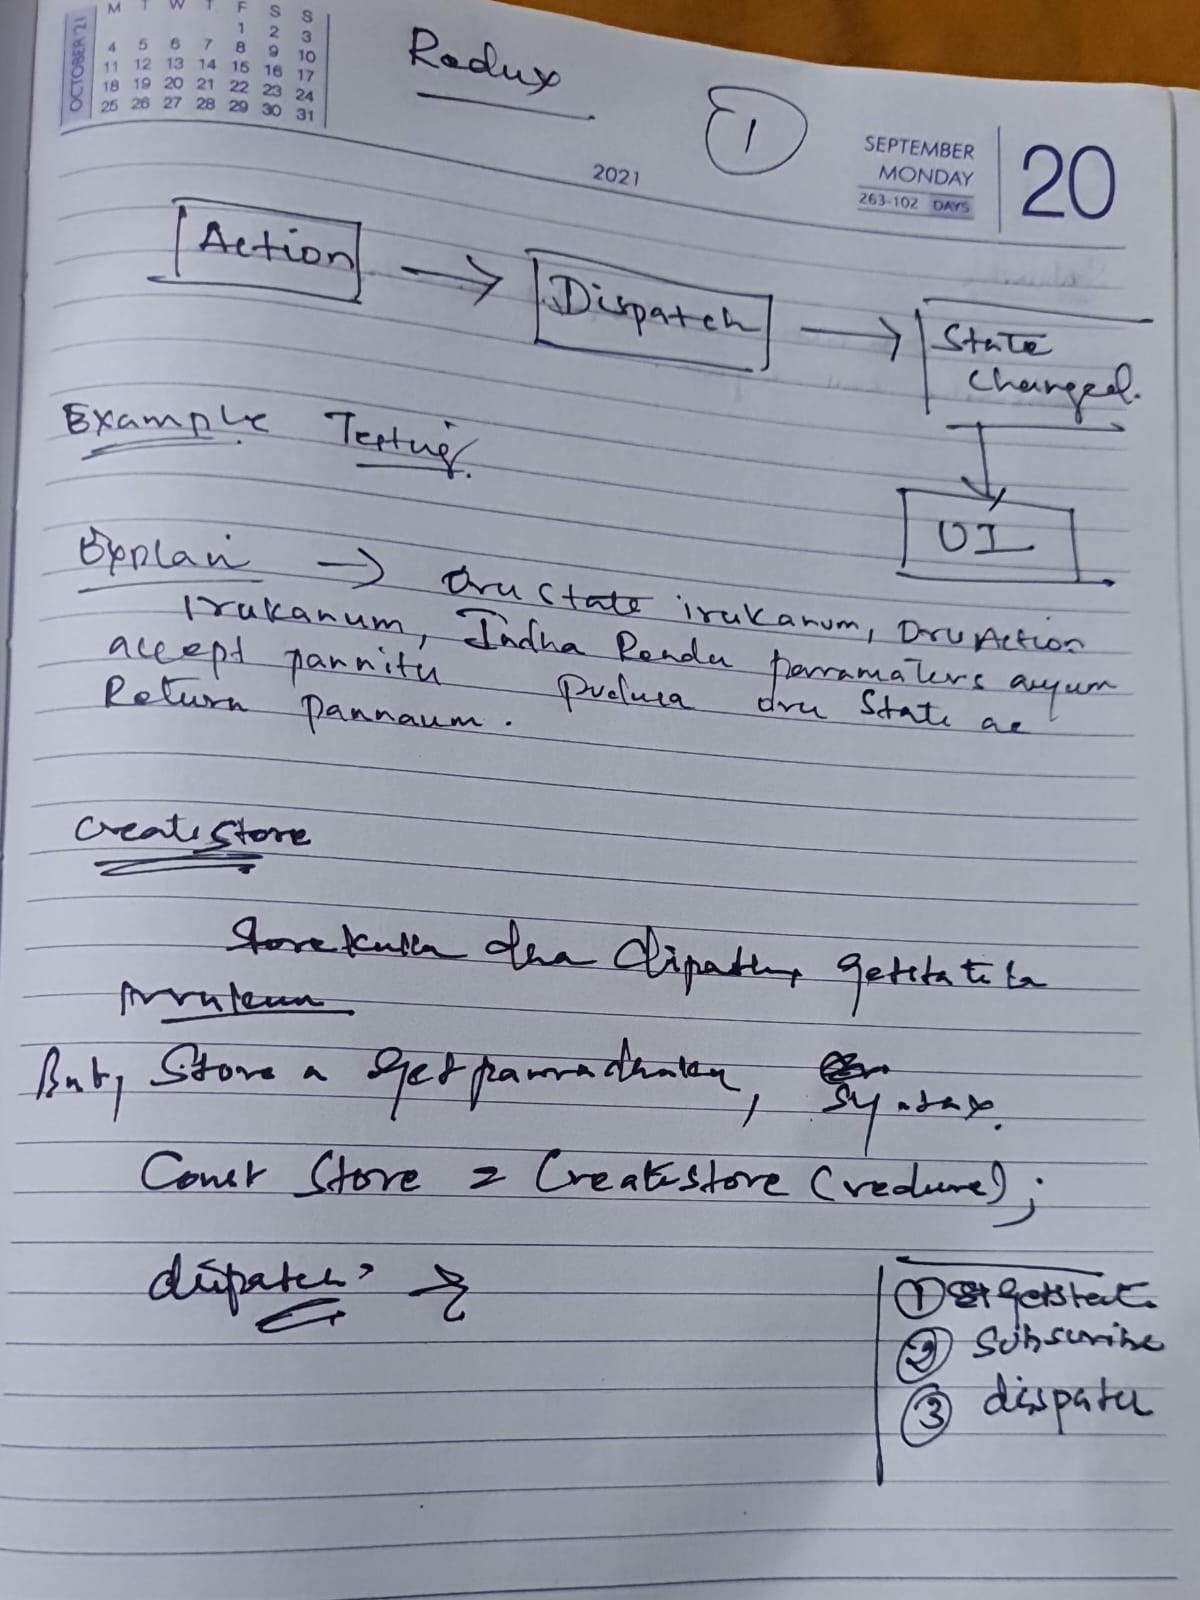 OCTOBER '21
M T W T F S S
1 2 3
4 5 6 7 8 9 10
11 12 13 14 15 16 17
18 19 20 21 22 23 24
25 26 27 28 29 30 31
Redux
1
2021
SEPTEMBER
MONDAY
263-102 DAYS
20
Action → Dispatch → State
changed.
Example Testing.
UI
Explain → Oru state irukanum, Oru Action
irukanum, Indha Rendu parramaters aiyum
accept pannitu pudusa oru State ae
Return pannaum.
createstore
Storekulla dha dipatch, getstate la
But, Store a get pannradhuku, Syntax.
Const Store = Createstore (reducer);
dispatch →
① getstate
② Subscribe
③ dispatch